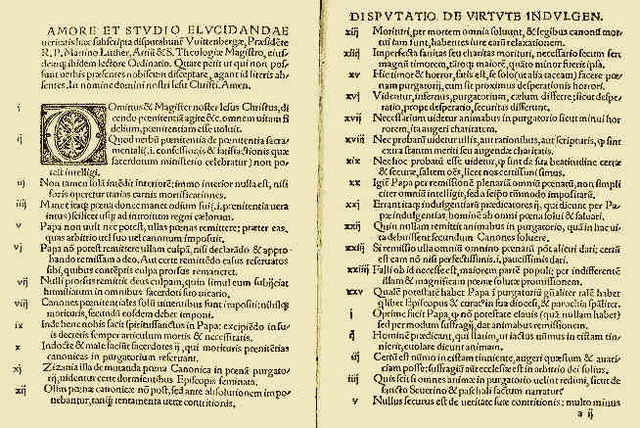 AMORE ET STVDIO ELVCIDANDAE
ueritatis hæc subscripta disputabunt̃ Vuittenbergæ, Præsidẽte
R. P. Martino Luther, Artiũ & S. Theologiæ Magistro, eius-
dem ibidem lectore Ordinatio. Quare petit ut qui non pos-
sunt uerbis præsentes nobiscum disceptare, agant id literis ab-
sentes. In nomine domini nostri Iesu Christi. Amen.
i DOminus & Magister noster Iesus Christus, di-
cendo pœnitentiã agite &c. omnem uitam fi-
delium, pœnitentiam esse uoluit.
ij Quod uerbũ pœnitentia de pœnitentia sacra-
mentali (.i. confessiõis & satisfactionis quæ
sacerdotum ministerio celebratur) non po-
test intelligi.
iij Non tamen solã intẽdit interiorẽ: immo interior nulla est, nisi
foris operetur uarias carnis mortificationes.
iiij Manet itaq; pœna donec manet odium sui (.i. pœnitentia uera
intus) scilicet usq; ad introitum regni cælorum.
v Papa non uult nec potest, ullas pœnas remittere: præter eas,
quas arbitrio uel suo uel canonum imposuit.
vj Papa nõ potest remittere ullam culpã, nisi declarãdo & appro-
bando remissam a deo, Aut certe remittẽdo casus reseruatos
sibi, quibus cõtẽptis culpa prorsus remaneret.
vij Nulli prorsus remittit deus culpam, quin simul eum subijciat
humiliatum in omnibus sacerdoti suo uicario.
viij Canones pœnitentiales solũ uiuentibus sunt impositi: nihilq;
morituris, secundũ eosdem debet imponi.
ix Inde bene nobis facit spiritussanctus in Papa: excipiẽdo in su-
is decretis semper articulum mortis & necessitatis.
x Indocte & male faciũt sacerdotes ij, qui morituris pœnitẽtias
canonicas in purgatorium reseruant.
xj Zizania illa de mutanda pœna Canonica in pœnã purgato-
rij, uidentur certe dormientibus Episcopis seminata.
xij Olim pœnæ canonicæ nõ post, sed ante absolutionem impo-
nebantur, tanq̃ tentamenta ueræ contritionis.
DISPVTATIO DE VIRTVTE INDVLGEN.
xiij Morituri, per mortem omnia soluunt, & legibus canonũ mor-
tui iam sunt, habentes iure earũ relaxationem.
xiiij Imperfecta sanitas seu charitas morituri, necessario secum fert
magnũ timorem, tãtoq; maiorẽ, quãto minor fuerit ipsa.
xv Hic timor & horror, satis est, se solo (ut alia taceam) facere pœ-
nam purgatorij, cum sit proximus desperationis horrori.
xvj Videntur, infernus, purgatorium, cælum differre: sicut despe-
ratio, prope desperatio, securitas differunt.
xvij Necessarium uidetur animabus in purgatorio sicut minui hor-
rorem, ita augeri charitatem.
xviij Nec probatũ uidetur ullis, aut rationibus, aut scripturis, q̃ sint
extra statum meriti seu augendæ charitatis.
xix Nec hoc probatũ esse uidetur, q̃ sint de sua beatitudine certæ
& securæ, saltem oẽs, licet nos certissimi simus.
xx Igit̃ Papa per remissionẽ plenariã omniũ pœnarũ, non simpli
citer omniũ intelligit, sed a seipo tãmodo impositarũ.
xxj Errant itaq; indulgentiarũ prædicatores ij, qui dicunt per Pa-
pæ indulgentias, hominẽ ab omni pœna solui & saluari.
xxij Quin nullam remittit animabus in purgatorio, quã in hac ui-
ta debuissent secundum Canones soluere.
xxiij Si remissio ulla omniũ omnino pœnarũ põt alicui dari; certũ
est eam nõ nisi perfectissimis .i. paucissimis dari.
xxiiij Falli ob id necesse est, maiorem partẽ populi; per indifferentẽ
illam & magnificam pœnæ solutæ promissionem.
xxv Qualẽ potestatẽ habet Papa ĩ purgatoriũ gñaliter talẽ habet
q̃libet Episcopus & curatꝰ in sua diocesi, & parochia spãliter.
i Optime facit Papa, q̃ nõ potestate clauis (quã nullam habet)
sed per modum suffragij, dat animabus remissionem.
ij Hominẽ prædicant, qui statim, ut iactus nũmus in cistam tin-
nierit, euolare dicunt animam.
iij Certũ est nũmo in cistam tinniente, augeri quæstum & auari-
ciam posse: suffragiũ aũt ecclesiæ est in arbitrio dei solius.
iiij Quis scit si omnes animæ in purgatorio uelint redimi, sicut de
sancto Seuerino & paschali factum narratur̃
v Nullus securus est de ueritate suæ contritionis: multo minus
a ij